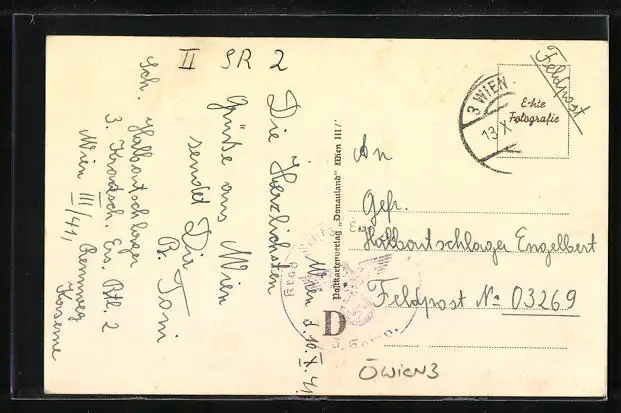 II SR 2
Die Herzlichsten
Grüße aus Wien
sendet Dir
Br. Toni
Sch. Halbautschlager
3. Kraftsch. Ers. Btl. 2
Wien III/ Rennweg
Kaserne
Wien d. 10. X. 41
Postkartenverlag „Donauland" Wien III/
D
Feldpost
3 WIEN
13. X
Echte
Fotografie
An
Gefr.
Halbautschlager Engelbert
Feldpost No 03269
ÖWIEN3